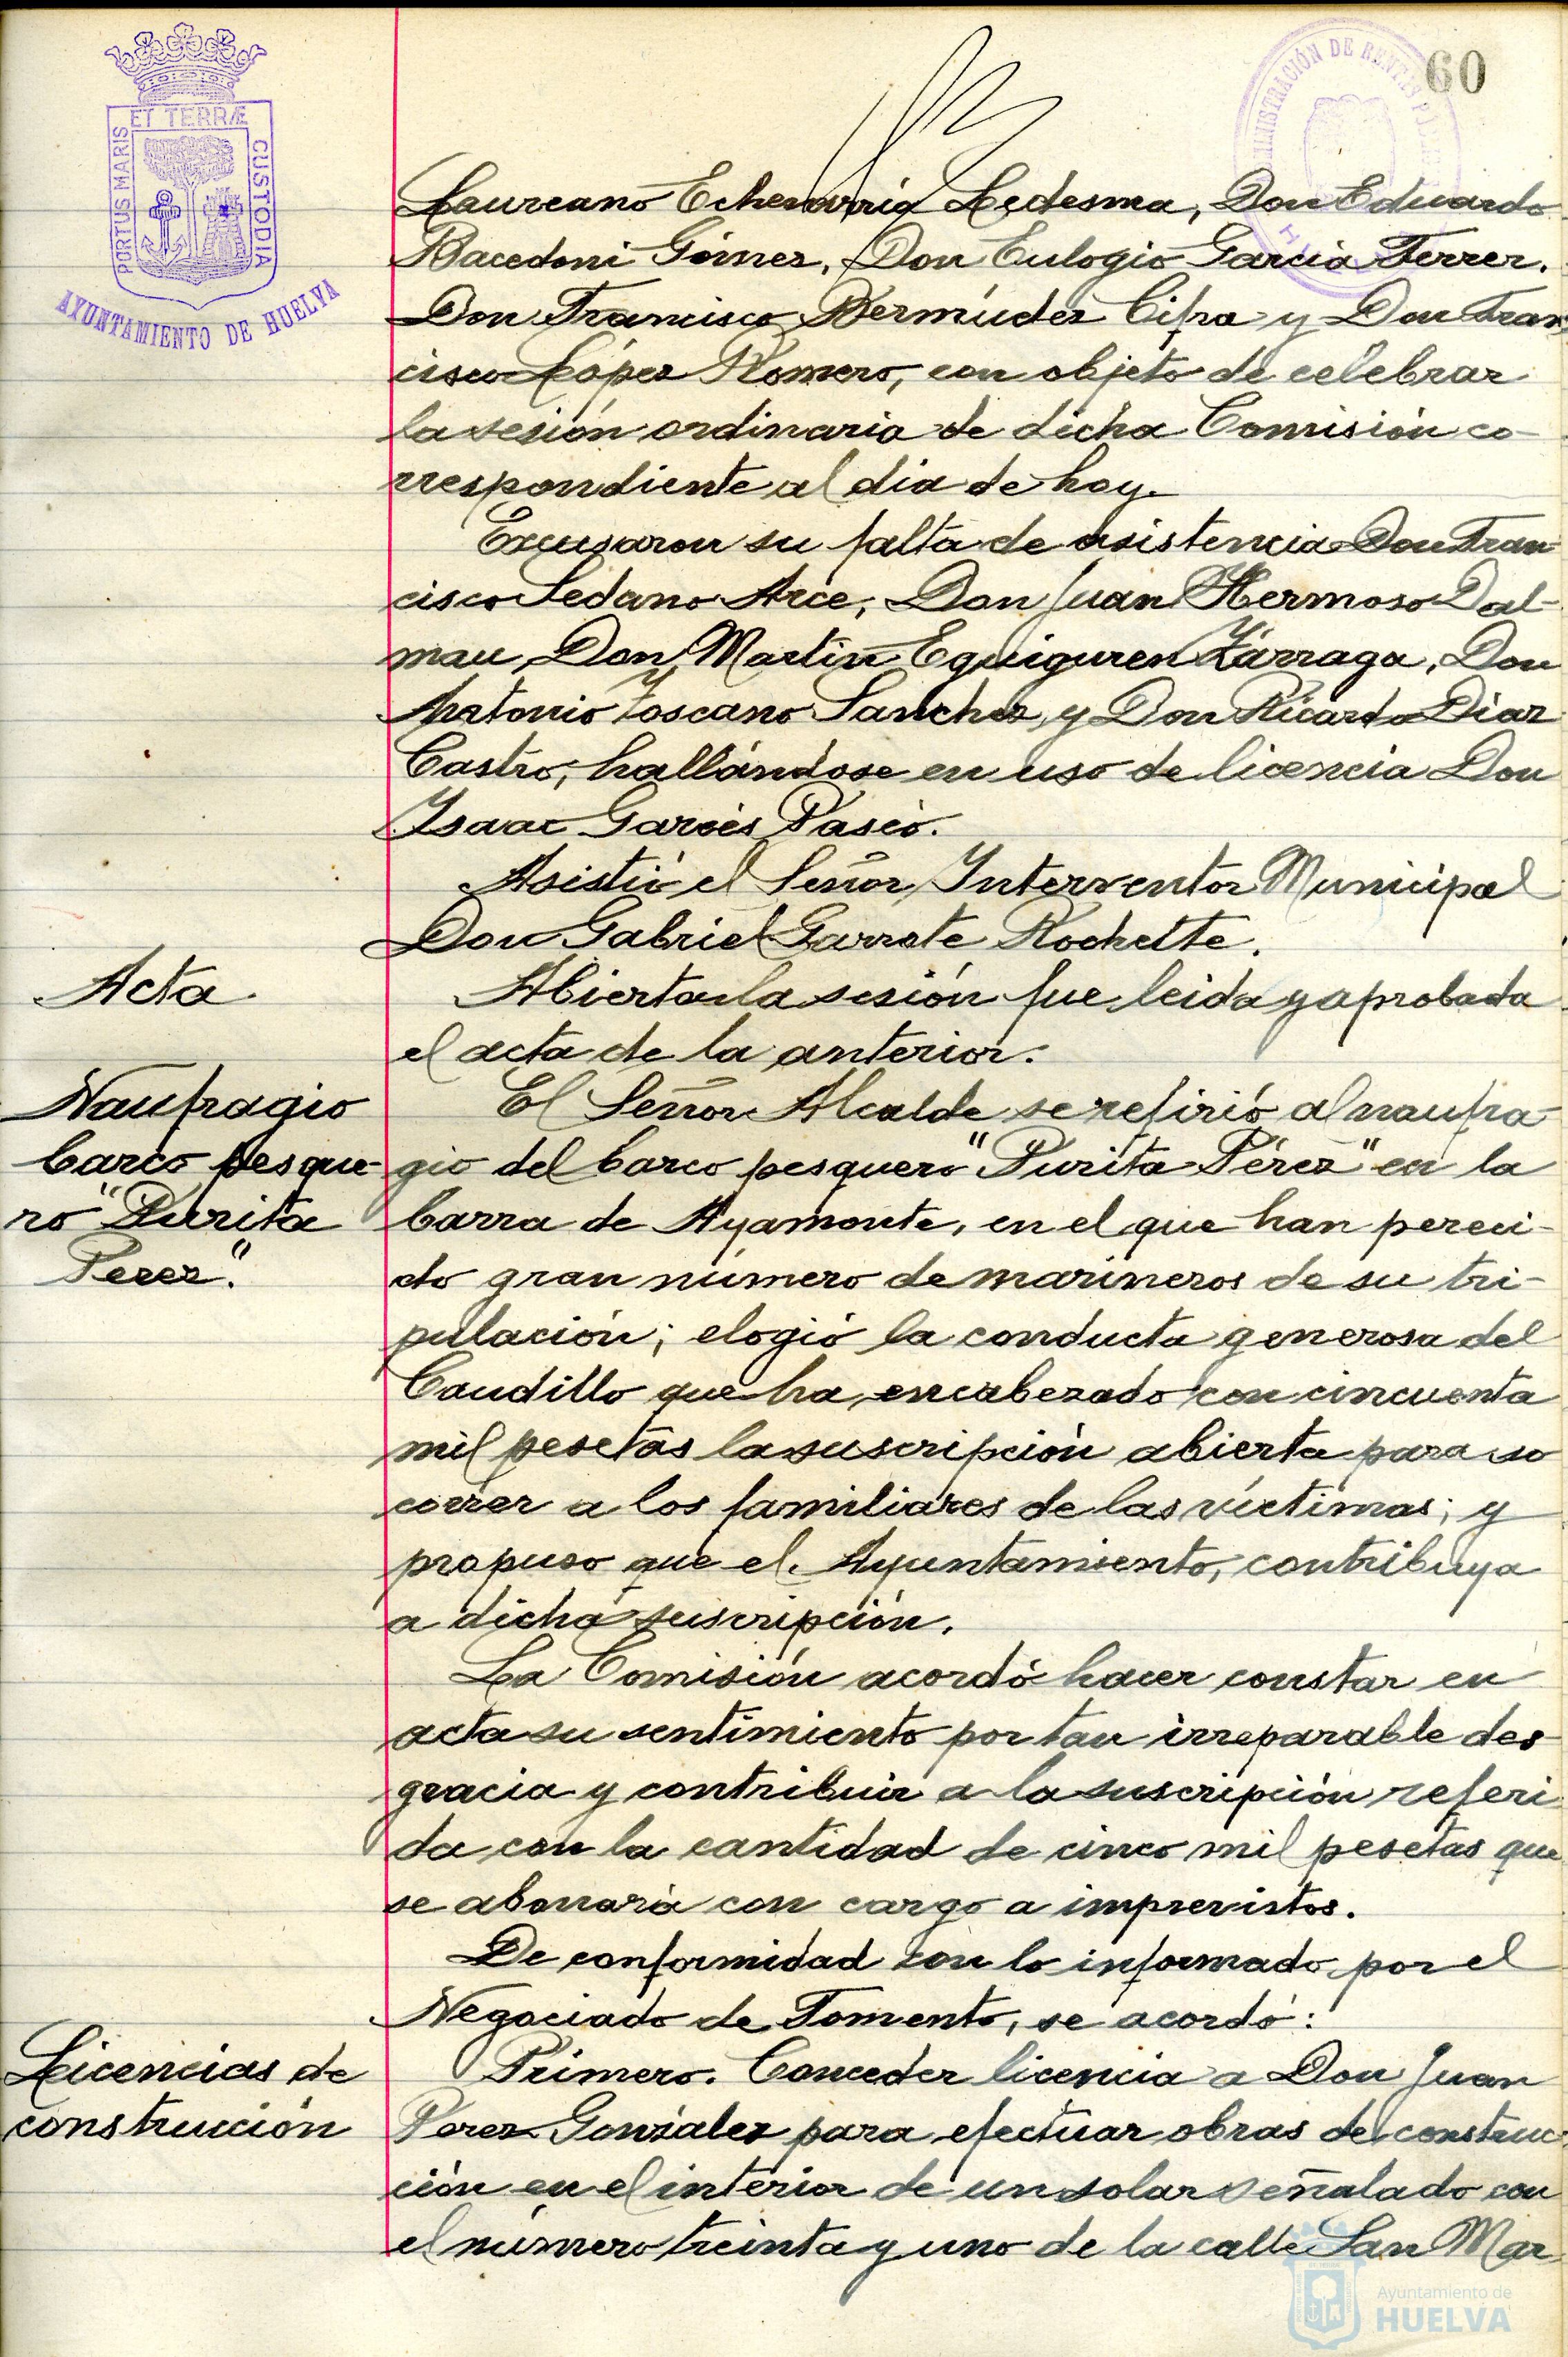 60
PORTUS MARIS
ET TERRÆ
CUSTODIA
AYUNTAMIENTO DE HUELVA
ADMINISTRACIÓN DE RENTAS
Laureano Echevarria Ledesma, Don Eduardo
Bacedoni Gómez, Don Eulogio Garcia Ferrer,
Don Francisco Bermúdez Cifra y Don Fran
cisco López Romero, con objeto de celebrar
la sesión ordinaria de dicha Comisión co-
rrespondiente al dia de hoy.
Excusaron su falta de asistencia Don Fran
cisco Sedano Arce, Don Juan Hermoso Dal-
mau, Don Martin Eguiguren Zárraga, Don
Antonio Toscano Sanchez, y Don Ricardo Diaz
Castro, hallándose en uso de licencia Don
Ysaac Garcés Paseo.
Asistió el Señor Ynterventor Municipal
Don Gabriel Garrote Rochette.
Acta.
Abierta la sesión fue leida y aprobada
el acta de la anterior.
Naufragio
barco pesque-
ro "Purita
Perez".
El Señor Alcalde se refirió al naufra-
gio del barco pesquero "Purita Pérez" en la
barra de Ayamonte, en el que han pereci-
do gran número de marineros de su tri-
pulación; elogió la conducta generosa del
Caudillo que ha encabezado con cincuenta
mil pesetas la suscripción abierta para so
correr a los familiares de las víctimas; y
propuso que el Ayuntamiento, contribuya
a dicha suscripción.
La Comisión acordó hacer constar en
acta su sentimiento por tan irreparable des
gracia y contribuir a la suscripción referi
da con la cantidad de cinco mil pesetas que
se abonará con cargo a imprevistos.
De conformidad con lo informado por el
Negociado de Fomento, se acordó:
Licencias de
construcción
Primero. Conceder licencia a Don Juan
Perez González para efectuar obras de construc
ción en el interior de un solar señalado con
el número treinta y uno de la calle San Mar
Ayuntamiento de
HUELVA